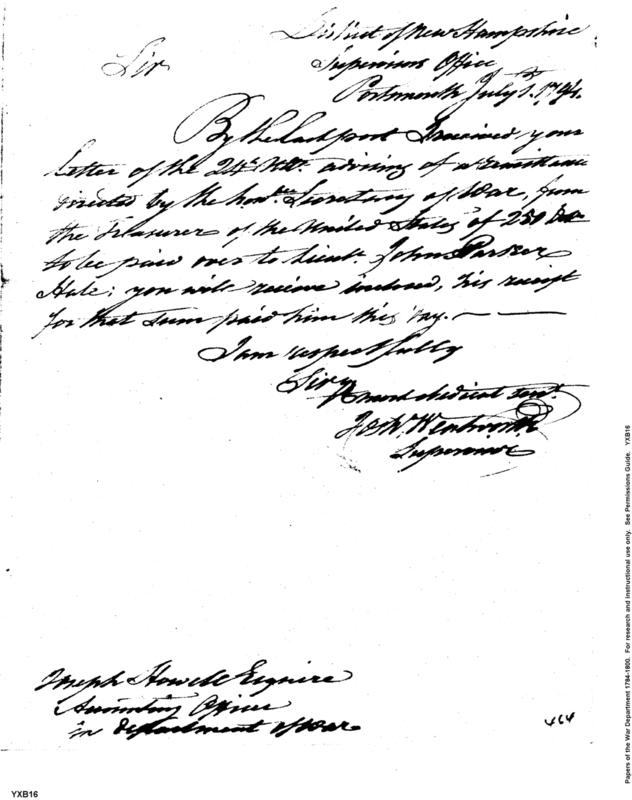 District of New Hampshire
Supervisors Office
Portsmouth July 1st. 1794.
Sir
By the last post I received your
letter of the 24th. Ulto. advising of a remittance
directed by the honble. Secretary of War, from
the Treasurer of the United States of 250 Dolls
to be paid over to Lieut. John Parker
Hale; you will receive inclosed, his receipt
for that sum paid him this day.
I am respectfully
Sir yr
most obedient servt.
Jos. Wentworth
Supervisor
Joseph Howell Esquire
Accounting Officer
in department of War
464
YXB16
Papers of the War Department 1784-1800. For research and instructional use only. See Permissions Guide. YXB16